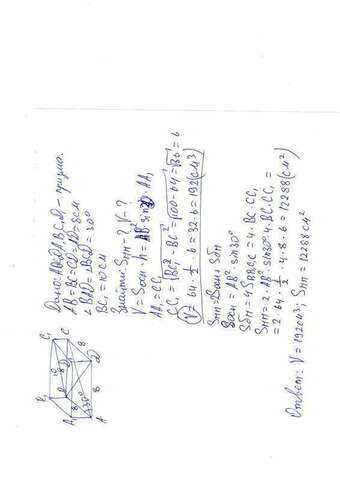 Дано: ABCDA₁B₁C₁D₁ - призма.
AB = BC = CD = AD = 8см
∠BAD = ∠BCD = 30°
BC₁ = 10 см
Знайти: Sпп - ? V - ?
V = Sосн · h = AB² · sin30 · AA₁
AA₁ = CC₁
CC₁ = √BC₁² - BC² = √100 - 64 = √36 = 6
V = 64 · 1/2 · 6 = 32 · 6 = 192 (см³)
Sпп = 2Sосн + Sбп
Sосн = AB² · sin30°
Sбп = 4SBB₁C₁C = 4 · BC · CC₁
Sпп = 2 · AB² · sin30° · 4 · BC · CC₁ =
= 2 · 64 · 1/2 · 4 · 8 · 6 = 12288 (см²)
Ответ: V = 192 см³; Sпп = 12288 см²
B₁ C₁
A₁ 8 B 10 8 C
30° D 8
A 8